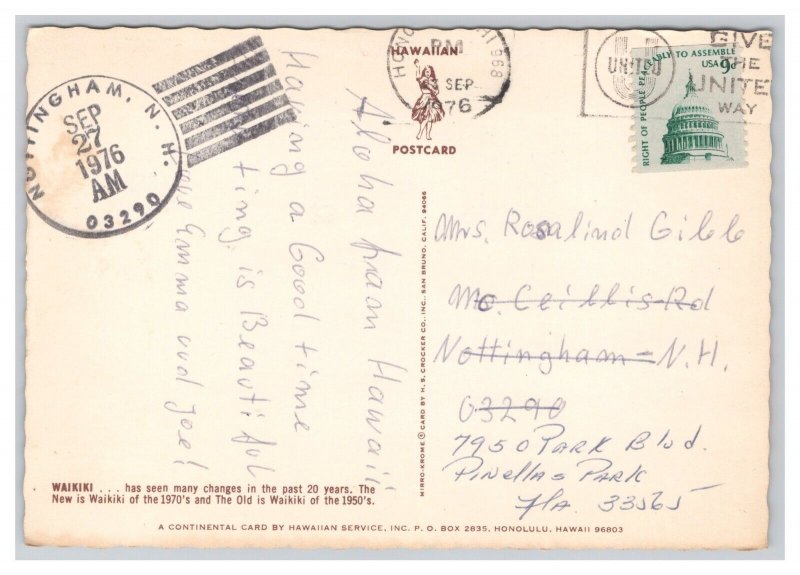 NOTTINGHAM, N.H.
SEP
27
1976
AM
03290
HAWAIIAN
POSTCARD
PM
SEP
1976
UNITED
GIVE
THE
UNITED
WAY
RIGHT OF PEOPLE PEACEABLY TO ASSEMBLE
USA 9c
Aloha from Hawaii
Having a Good time
ting is Beautiful
Love Emma und Joe!
Mrs. Rosalind Gibb
Mc. Ceillis Rd
Nottingham - N.H.
03290
7950 PARK Blvd.
PINELLAS PARK
Fla. 33565
MIRRO-KROME ® CARD BY H. S. CROCKER CO., INC., SAN BRUNO, CALIF. 94066
WAIKIKI . . . has seen many changes in the past 20 years. The
New is Waikiki of the 1970's and The Old is Waikiki of the 1950's.
A CONTINENTAL CARD BY HAWAIIAN SERVICE, INC. P. O. BOX 2835, HONOLULU, HAWAII 96803